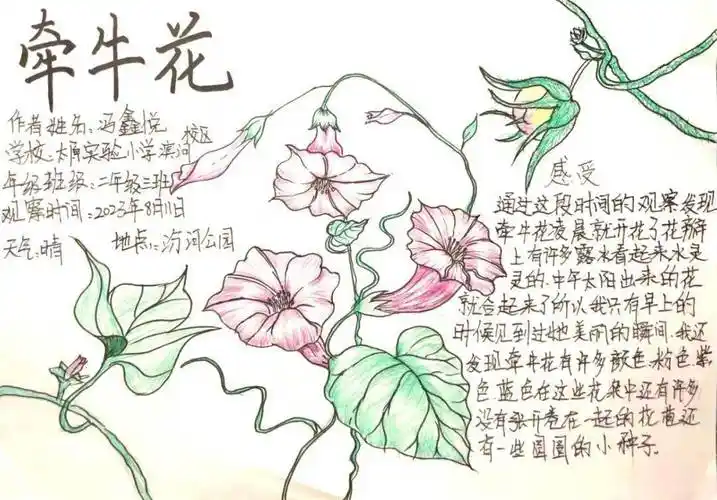 牵牛花
作者姓名:冯鑫悦
学校:太原实验小学滨河校区
年级班级:二年级三班
观察时间:2023年8月11日
天气:晴 地点:汾河公园
感受
通过这段时间的观察发现
牵牛花凌晨就开花了花瓣
上有许多露水看起来水灵
灵的.中午太阳出来的花
就合起来了所以我只有早上的
时候见到过她美丽的瞬间.我还
发现牵牛花有许多颜色.粉色.紫
色.蓝色在这些花朵中还有许多
没有张开卷在一起的花苞还
有一些圆圆的小种子.